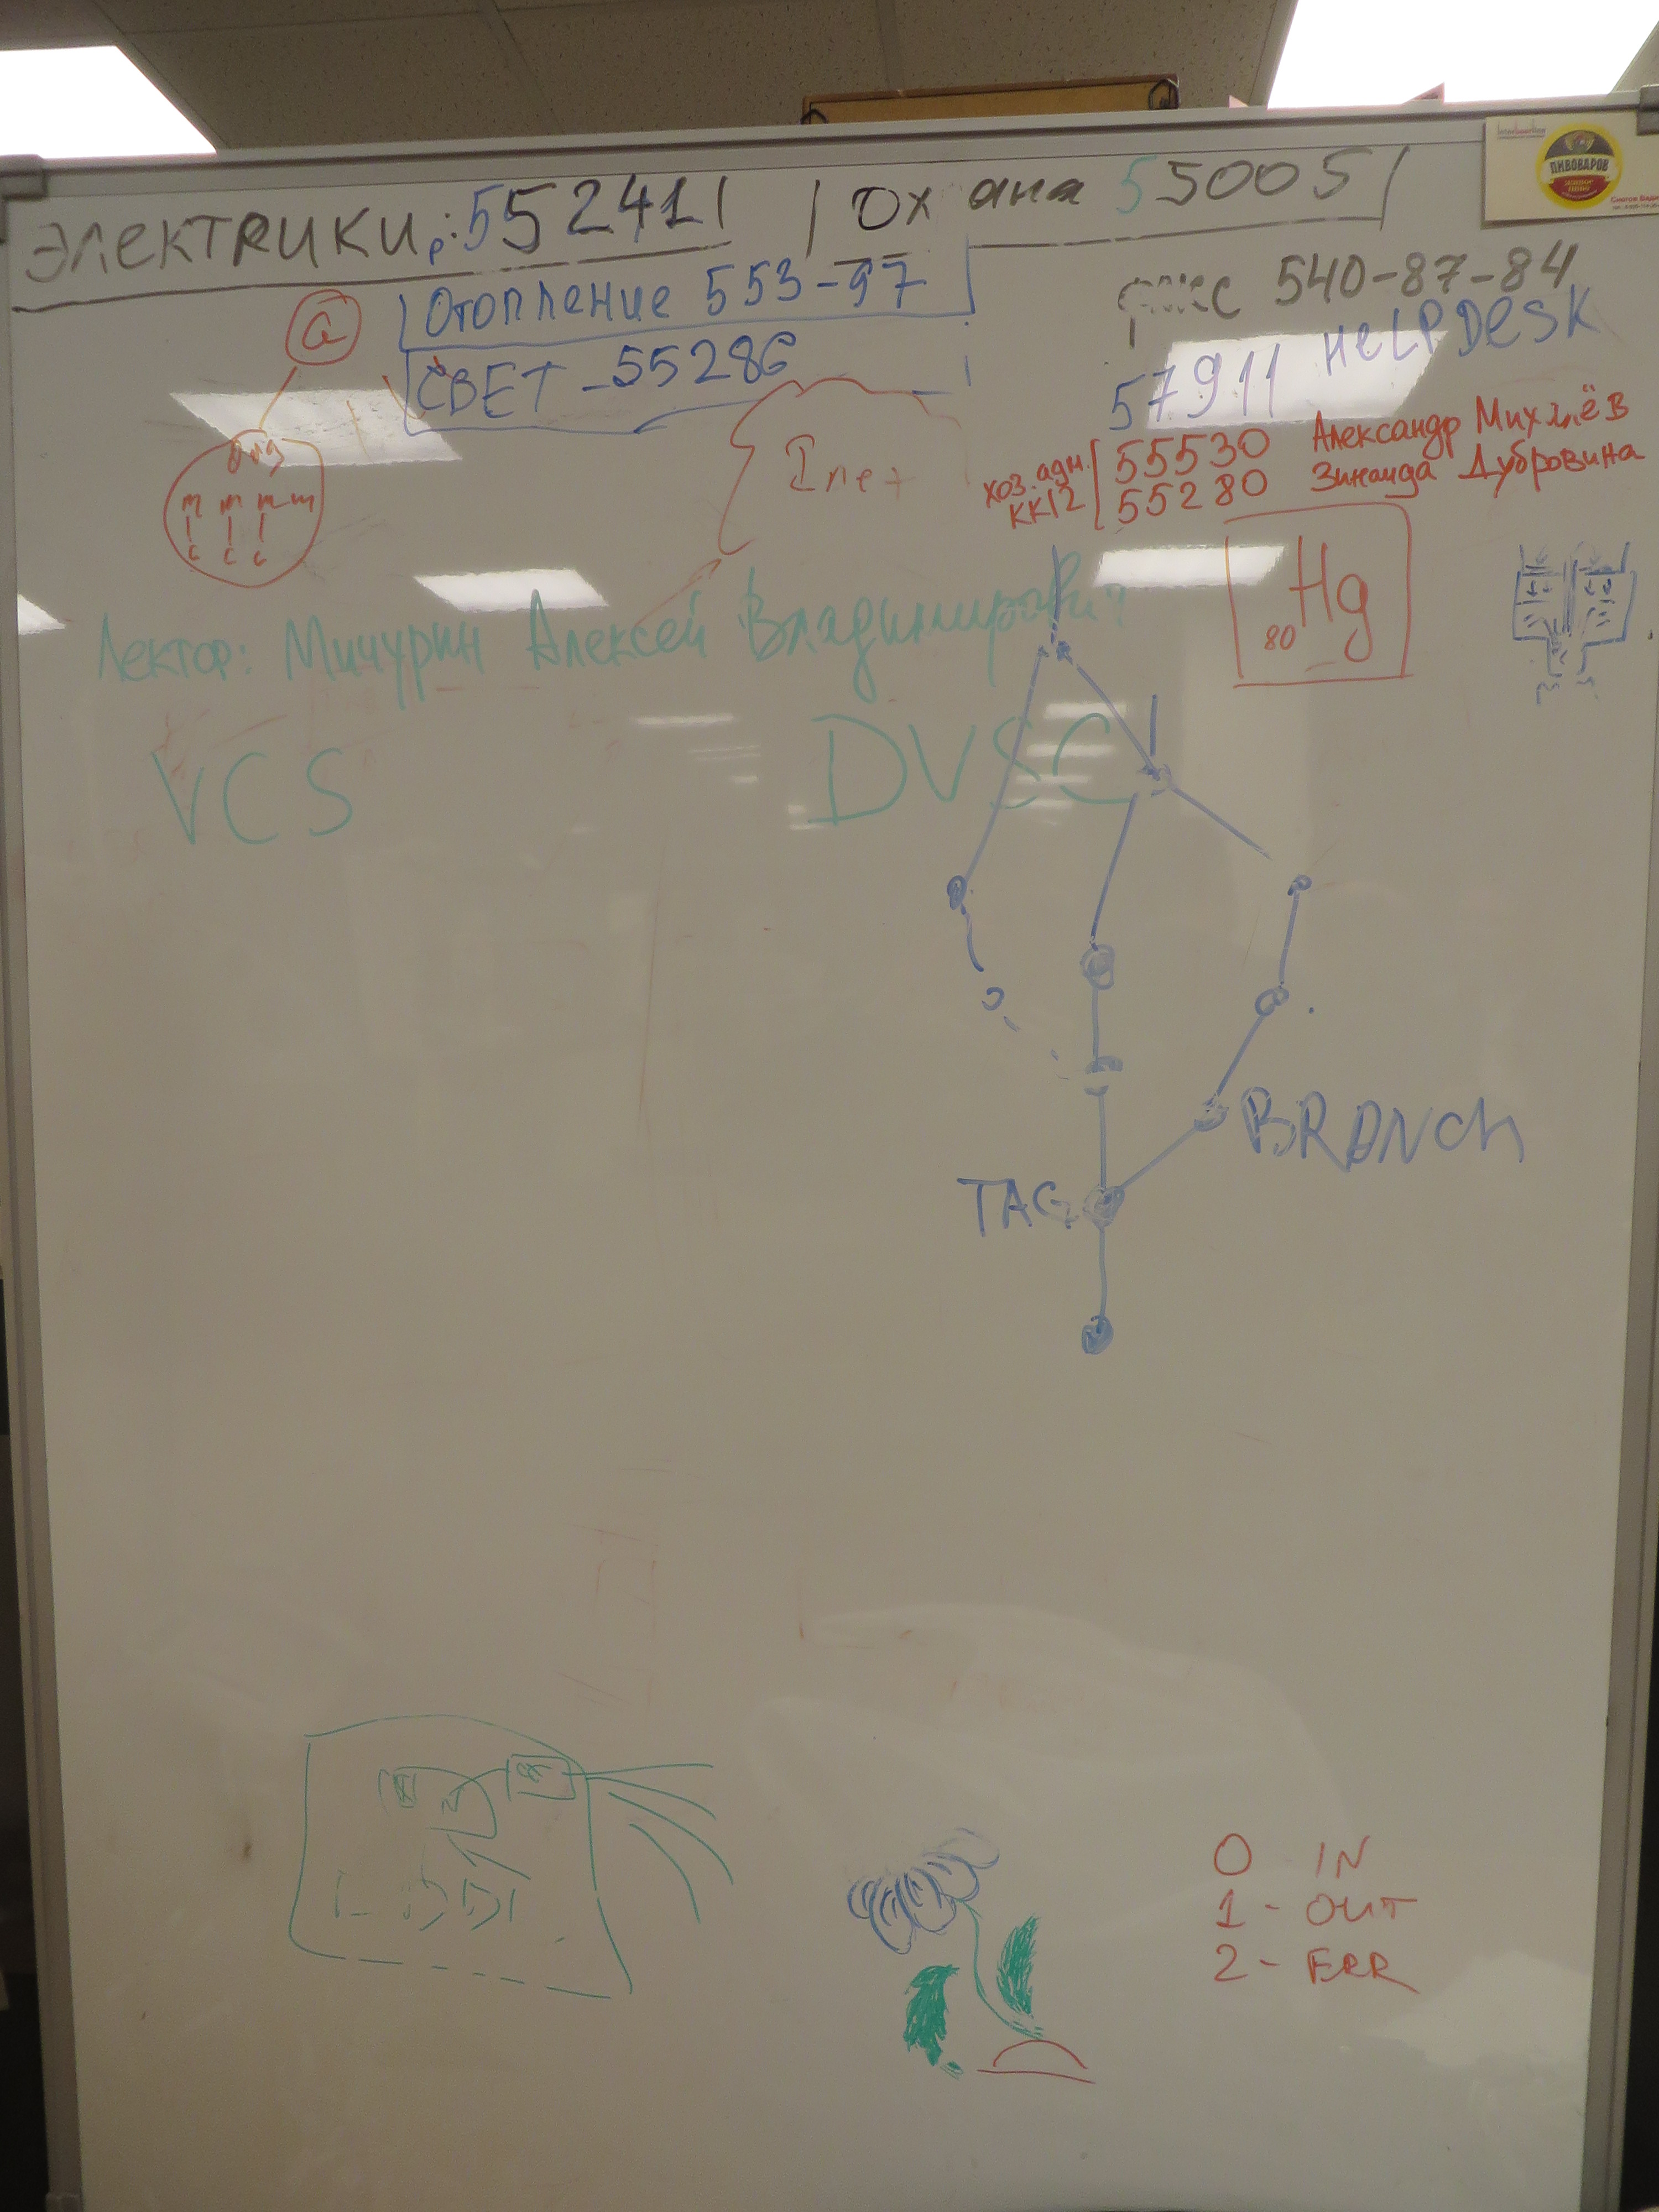 ЭЛЕКТРИКИ: 552411 / Охрана 55005 /
Отопление 553-97
СВЕТ - 55286
факс 540-87-84
57911 HELPDESK
хоз. адм. 55530 Александр Михалёв
КК12 55280 Зинаида Дубровина
ПИВОВАРОВ
a
m m m m
c c c
Inet
80 Hg
Лектор: Мичурин Алексей Владимирович
VCS DVSC
BRANCH
TAG
0 IN
1 - OUT
2 - ERR